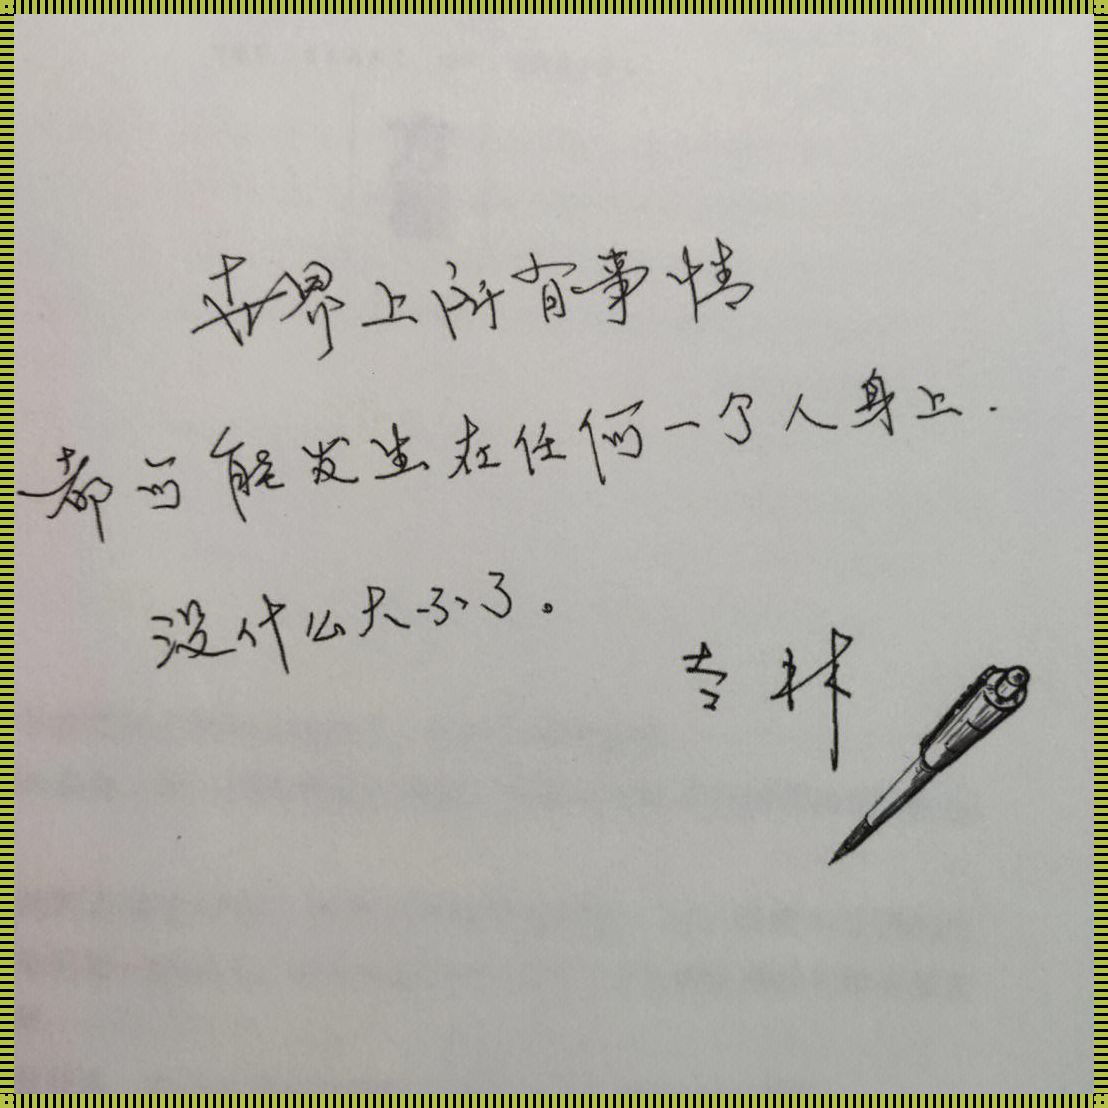 世界上所有事情
都可能发生在任何一个人身上.
没什么大不了。
吉林